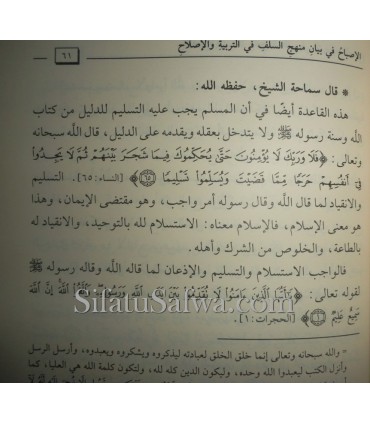 الإصباح في بيان منهج السلف في التربية والإصلاح
٦١
* قال سماحة الشيخ، حفظه الله:
هذه القاعدة أيضًا في أن المسلم يجب عليه التسليم للدليل من كتاب
الله وسنة رسوله ﷺ ولا يتدخل بعقله ويقدمه على الدليل، قال الله سبحانه
وتعالى: ﴿فَلَا وَرَبِّكَ لَا يُؤْمِنُونَ حَتَّىٰ يُحَكِّمُوكَ فِيمَا شَجَرَ بَيْنَهُمْ ثُمَّ لَا يَجِدُوا
فِي أَنفُسِهِمْ حَرَجًا مِّمَّا قَضَيْتَ وَيُسَلِّمُوا تَسْلِيمًا ۝٦٥﴾ [النساء: ٦٥]. التسليم
والانقياد لما قال الله وقال رسوله أمر واجب، وهو مقتضى الإيمان، وهذا
هو معنى الإسلام، فالإسلام معناه: الاستسلام لله بالتوحيد، والانقياد له
بالطاعة، والخلوص من الشرك وأهله.
فالواجب الاستسلام والتسليم والإذعان لما قاله الله وقاله رسوله ﷺ
لقوله تعالى: ﴿يَا أَيُّهَا الَّذِينَ آمَنُوا لَا تُقَدِّمُوا بَيْنَ يَدَيِ اللَّهِ وَرَسُولِهِ وَاتَّقُوا اللَّهَ إِنَّ اللَّهَ
سَمِيعٌ عَلِيمٌ ۝١﴾ [الحجرات: ١].
SilatuSalwa.com
= والله سبحانه وتعالى إنما خلق الخلق لعبادته ليذكروه ويشكروه ويعبدوه، وأرسل الرسل
وأنزل الكتب ليعبدوا الله وحده، وليكون الدين كله لله، ولتكون كلمة الله هي العليا، كما